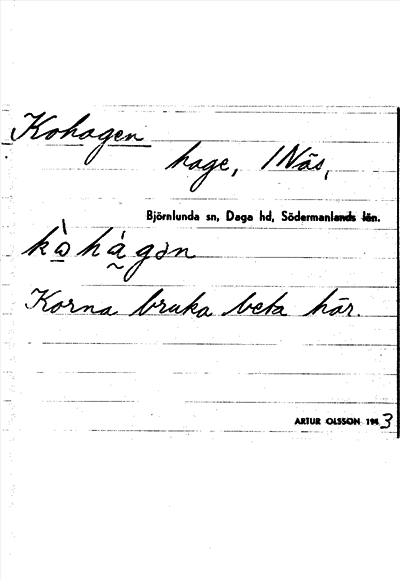 Kohagen
hage, 1 Näs,
Björnlunda sn, Daga hd, Södermanlands län.
kὼhágən
Korna bruka beta här.
ARTUR OLSSON 1943